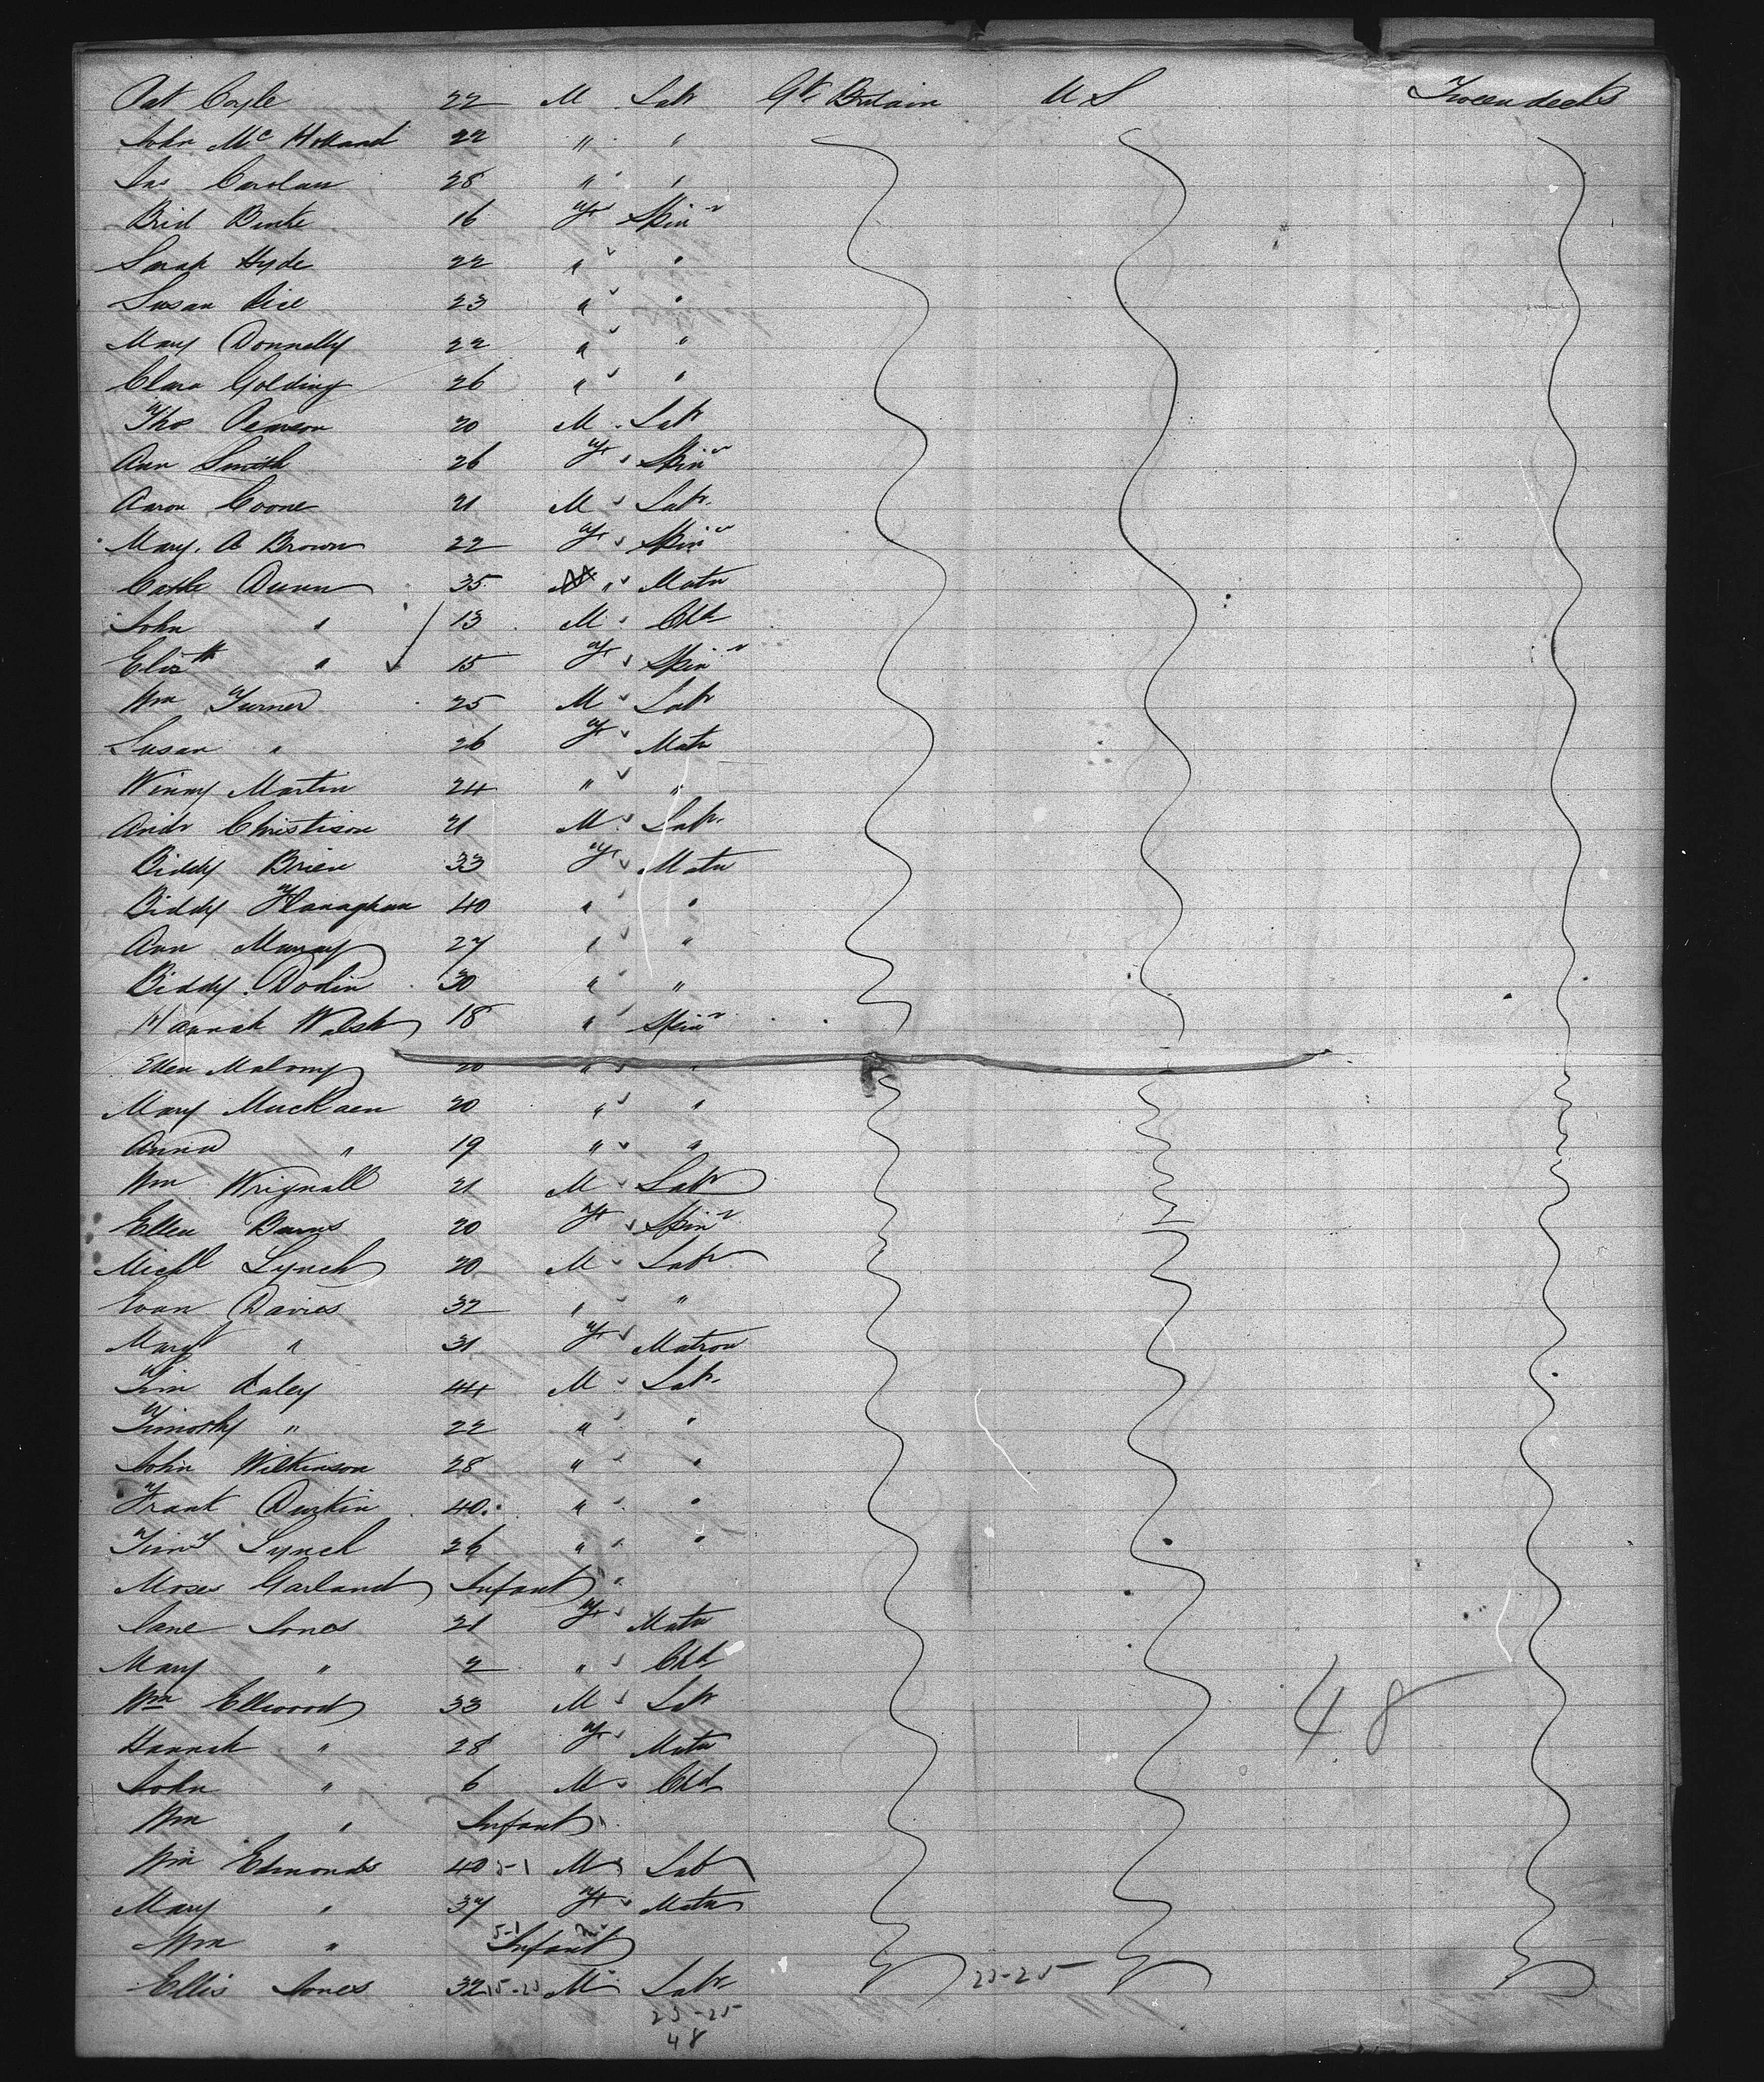 Pat Coyle 22 M Labr Gt. Britain U S Tween decks
John Mc Holland 22 " "
Jas Carolan 28 " "
Brid Burke 16 F Spinr
Sarah Hyde 22 " "
Susan Rice 23 " "
Mary Donnelly 22 " "
Clara Golding 26 " "
Thos Pearson 20 M Labr
Ann Smith 26 F Spinr
Aaron Coone 21 M Labr
Mary. A Brown 22 F Spinr
Cathe Dunn 35 " Matn
John " 13 M Chld
Elizth " 15 F Spinr
Wm Turner 25 M Labr
Susan " 26 F Matn
Winny Martin 24 " "
Andr Christison 21 M Labr
Biddy Brien 33 F Matn
Biddy Flanaghan 40 " "
Ann Murray 27 " "
Biddy Dolin 30 " "
Hannah Walsh 18 " Spinr
Ellen Malony 20 " "
Mary MucKaen 20 " "
Anna " 19 " "
Wm Wrignall 21 M Labr
Ellen Burns 20 F Spinr
Michl Lynch 20 M Labr
Evan Davies 32 " "
Margt " 31 F Matron
Tim Daley 44 M Labr
Timothy " 22 " "
John Wilkinson 28 " "
Frank Durkin 40 " "
Timy Lynch 26 " "
Moses Garland Infant "
Jane Jones 21 F Matn
Mary " 2 " Chld
Wm Ellwood 33 M Labr
Hannah " 28 F Matn
John " 6 M Chld
Wm " Infant
48
Wm Edmonds 40 5-1 M Labr
Mary " 37 F Matn
Wm " 5-1 Infant m
Ellis Jones 32 15-23 M Labr 23-25
23-25
48